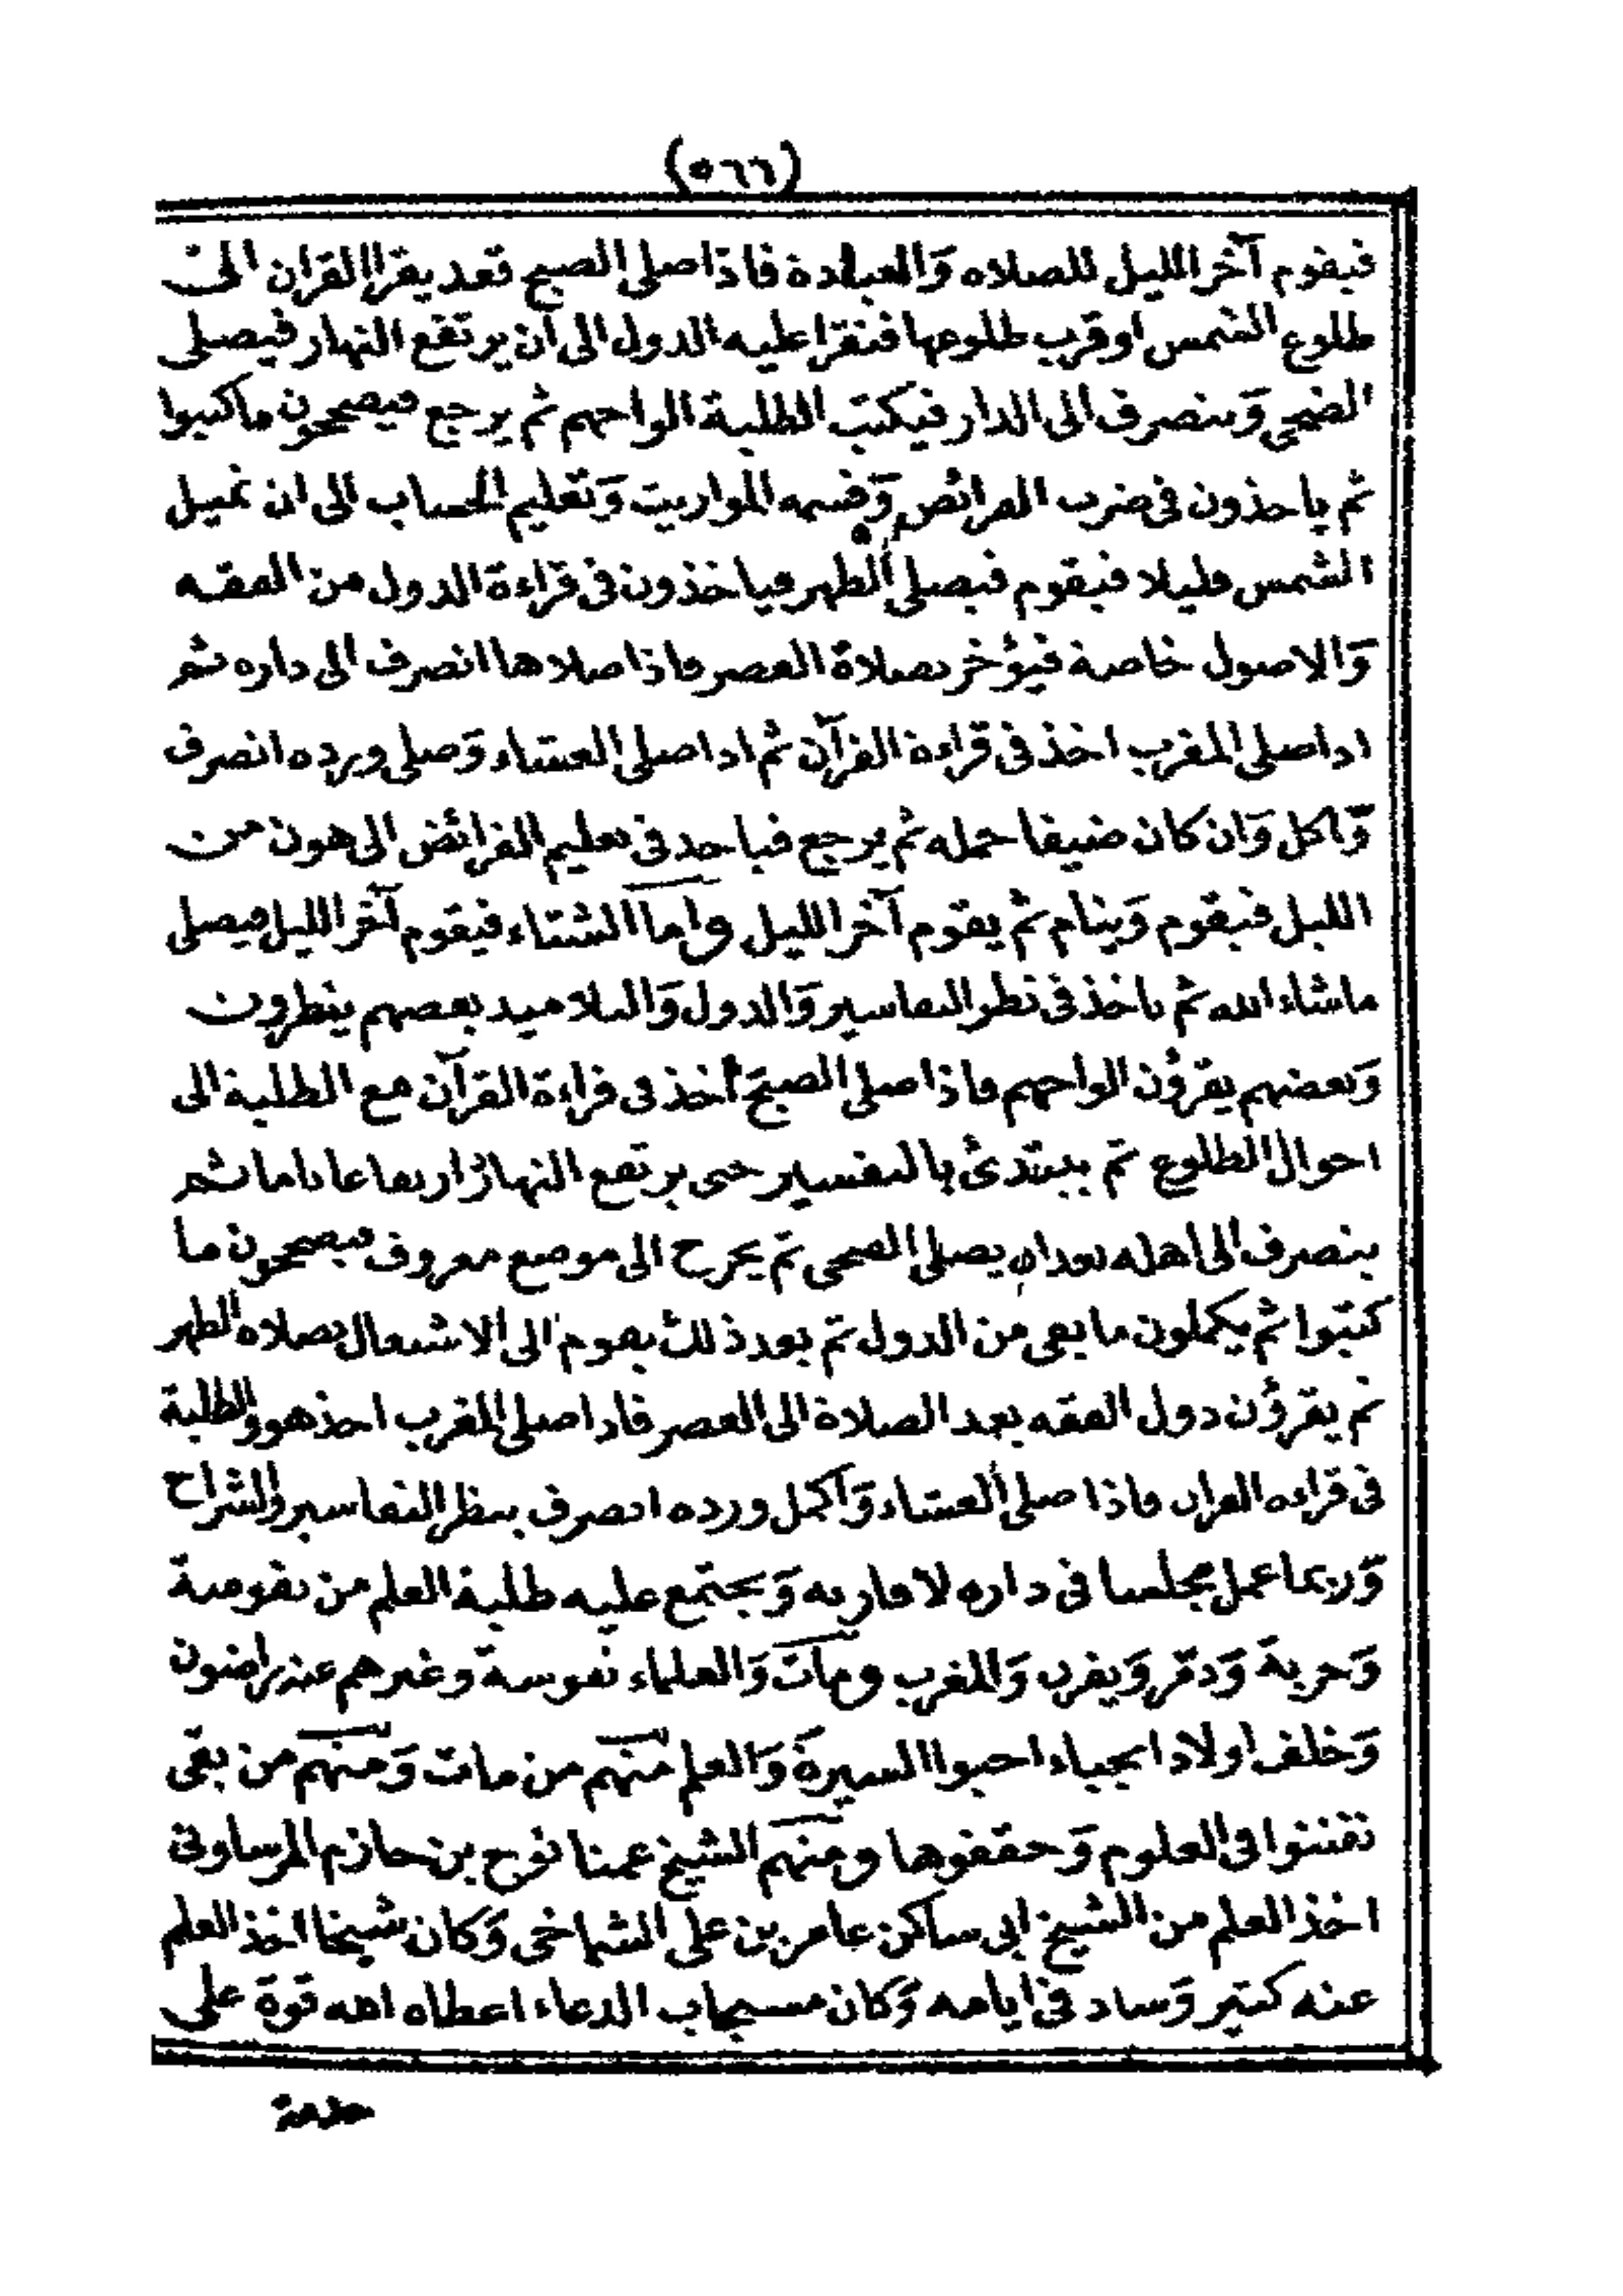 (٥٦٦)
فيقوم آخر الليل للصلاة وَالعبادة فاذا صلى الصبح قعد يقرا القران الى
طلوع الشمس او قرب طلوعها فتقرا عليه الدول الى ان يرتفع النهار فيصلى
الضحى وَينصرف الى الدار فيكتب الطلبة الواحهم ثم يرجع فيصححون ما كتبوا
ثم ياخذون فى ضرب الفرائض وَقسمه المواريث وَتعليم الحساب الى ان تميل
الشمس قليلا فيقوم فيصلى الظهر فياخذون فى قراءة الدول من الفقه
وَالاصول خاصة فيؤخر بصلاة العصر فاذا صلاها انصرف الى داره ثم
اذا صلى المغرب اخذ فى قراءة القرآن ثم اذا صلى العشاء وَصلى ورده انصرف
وَاكل وَان كان ضيفا حمله ثم يرجع فياخذ فى تعليم الفرائض الى هون من
الليل فيقوم وَينام ثم يقوم آخر الليل واما الشتاء فيقوم آخر الليل فيصلى
ماشاء الله ثم ياخذ فى نظر التفاسير وَالدول وَالتلاميذ بعضهم ينظرون
وَبعضهم يقرؤن الواحهم فاذا صلى الصبح أخذ فى قراءة القرآن مع الطلبة الى
احوال الطلوع ثم يبتدئ بالتفسير حتى يرتفع النهار ارتفاعا تاما ثم
ينصرف الى اهله بعد ان يصلى الضحى ثم يخرج الى موضع معروف فيصححون ما
كتبوا ثم يكملون ما بقى من الدول ثم بعد ذلك يقوم الى الاشتغال بصلاة الظهر
ثم يقرؤن دول الفقه بعد الصلاة الى العصر فاذا صلى المغرب اخذ هو والطلبة
فى قراءة القران فاذا صلى العشاء وَاكمل ورده انصرف ينظر التفاسير والشراح
وَربما عمل مجلسا فى داره لاقاربه وَيجتمع عليه طلبة العلم من نفوسة
وَجربة وَدمر وَيفرن وَالمغرب ومات وَالعلماء نفوسة وغيرهم عنه راضون
وَخلف اولاد انجباء احبوا السيرة وَالعلم منهم من مات وَمنهم من بقى
تفننوا فى العلوم وَحققوها ومنهم الشيخ عمنا نوح بن حازم المرساونى
اخذ العلم من الشيخ ابى ساكن عامر بن على الشماخى وَكان شيخا اخذ العلم
عنه كثير وَساد فى ايامه وَكان مستجاب الدعاء اعطاه الله قوة على